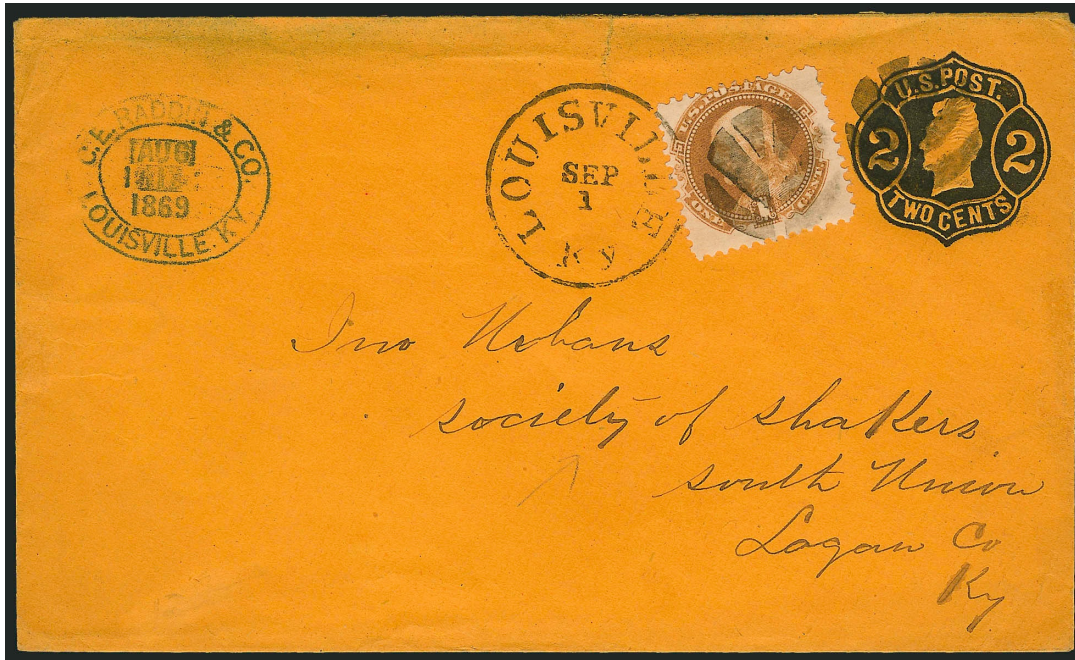 C.E. RADDIN & CO.
AUG
1869
LOUISVILLE. KY.
LOUISVILLE
SEP
1
Ky
U.S. POSTAGE
ONE CENT
1
U.S. POST.
2 2
TWO CENTS
Jno Urbans
society of shakers
south Union
Logan Co
Ky